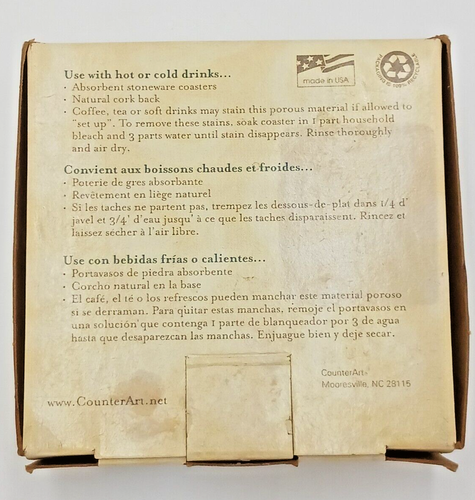 Use with hot or cold drinks...
• Absorbent stoneware coasters
• Natural cork back
• Coffee, tea or soft drinks may stain this porous material if allowed to
"set up". To remove these stains, soak coaster in 1 part household
bleach and 3 parts water until stain disappears. Rinse thoroughly
and air dry.
made in USA
Convient aux boissons chaudes et froides...
• Poterie de gres absorbante
• Revêtement en liège naturel
• Si les taches ne partent pas, trempez les dessous-de-plat dans 1/4 d'
javel et 3/4' d'eau jusqu' à ce que les taches disparaissent. Rincez et
laissez sécher à l'air libre.
Use con bebidas frías o calientes...
• Portavasos de piedra absorbente
• Corcho natural en la base
• El café, el té o los refrescos pueden manchar este material poroso
si se derraman. Para quitar estas manchas, remoje el portavasos en
una solución que contenga 1 parte de blanqueador por 3 de agua
hasta que desaparezcan las manchas. Enjuague bien y deje secar.
CounterArt®
Mooresville, NC 28115
www.CounterArt.net